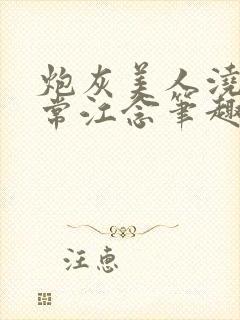 炮灰美人浇
常江念笔趣
汪惠